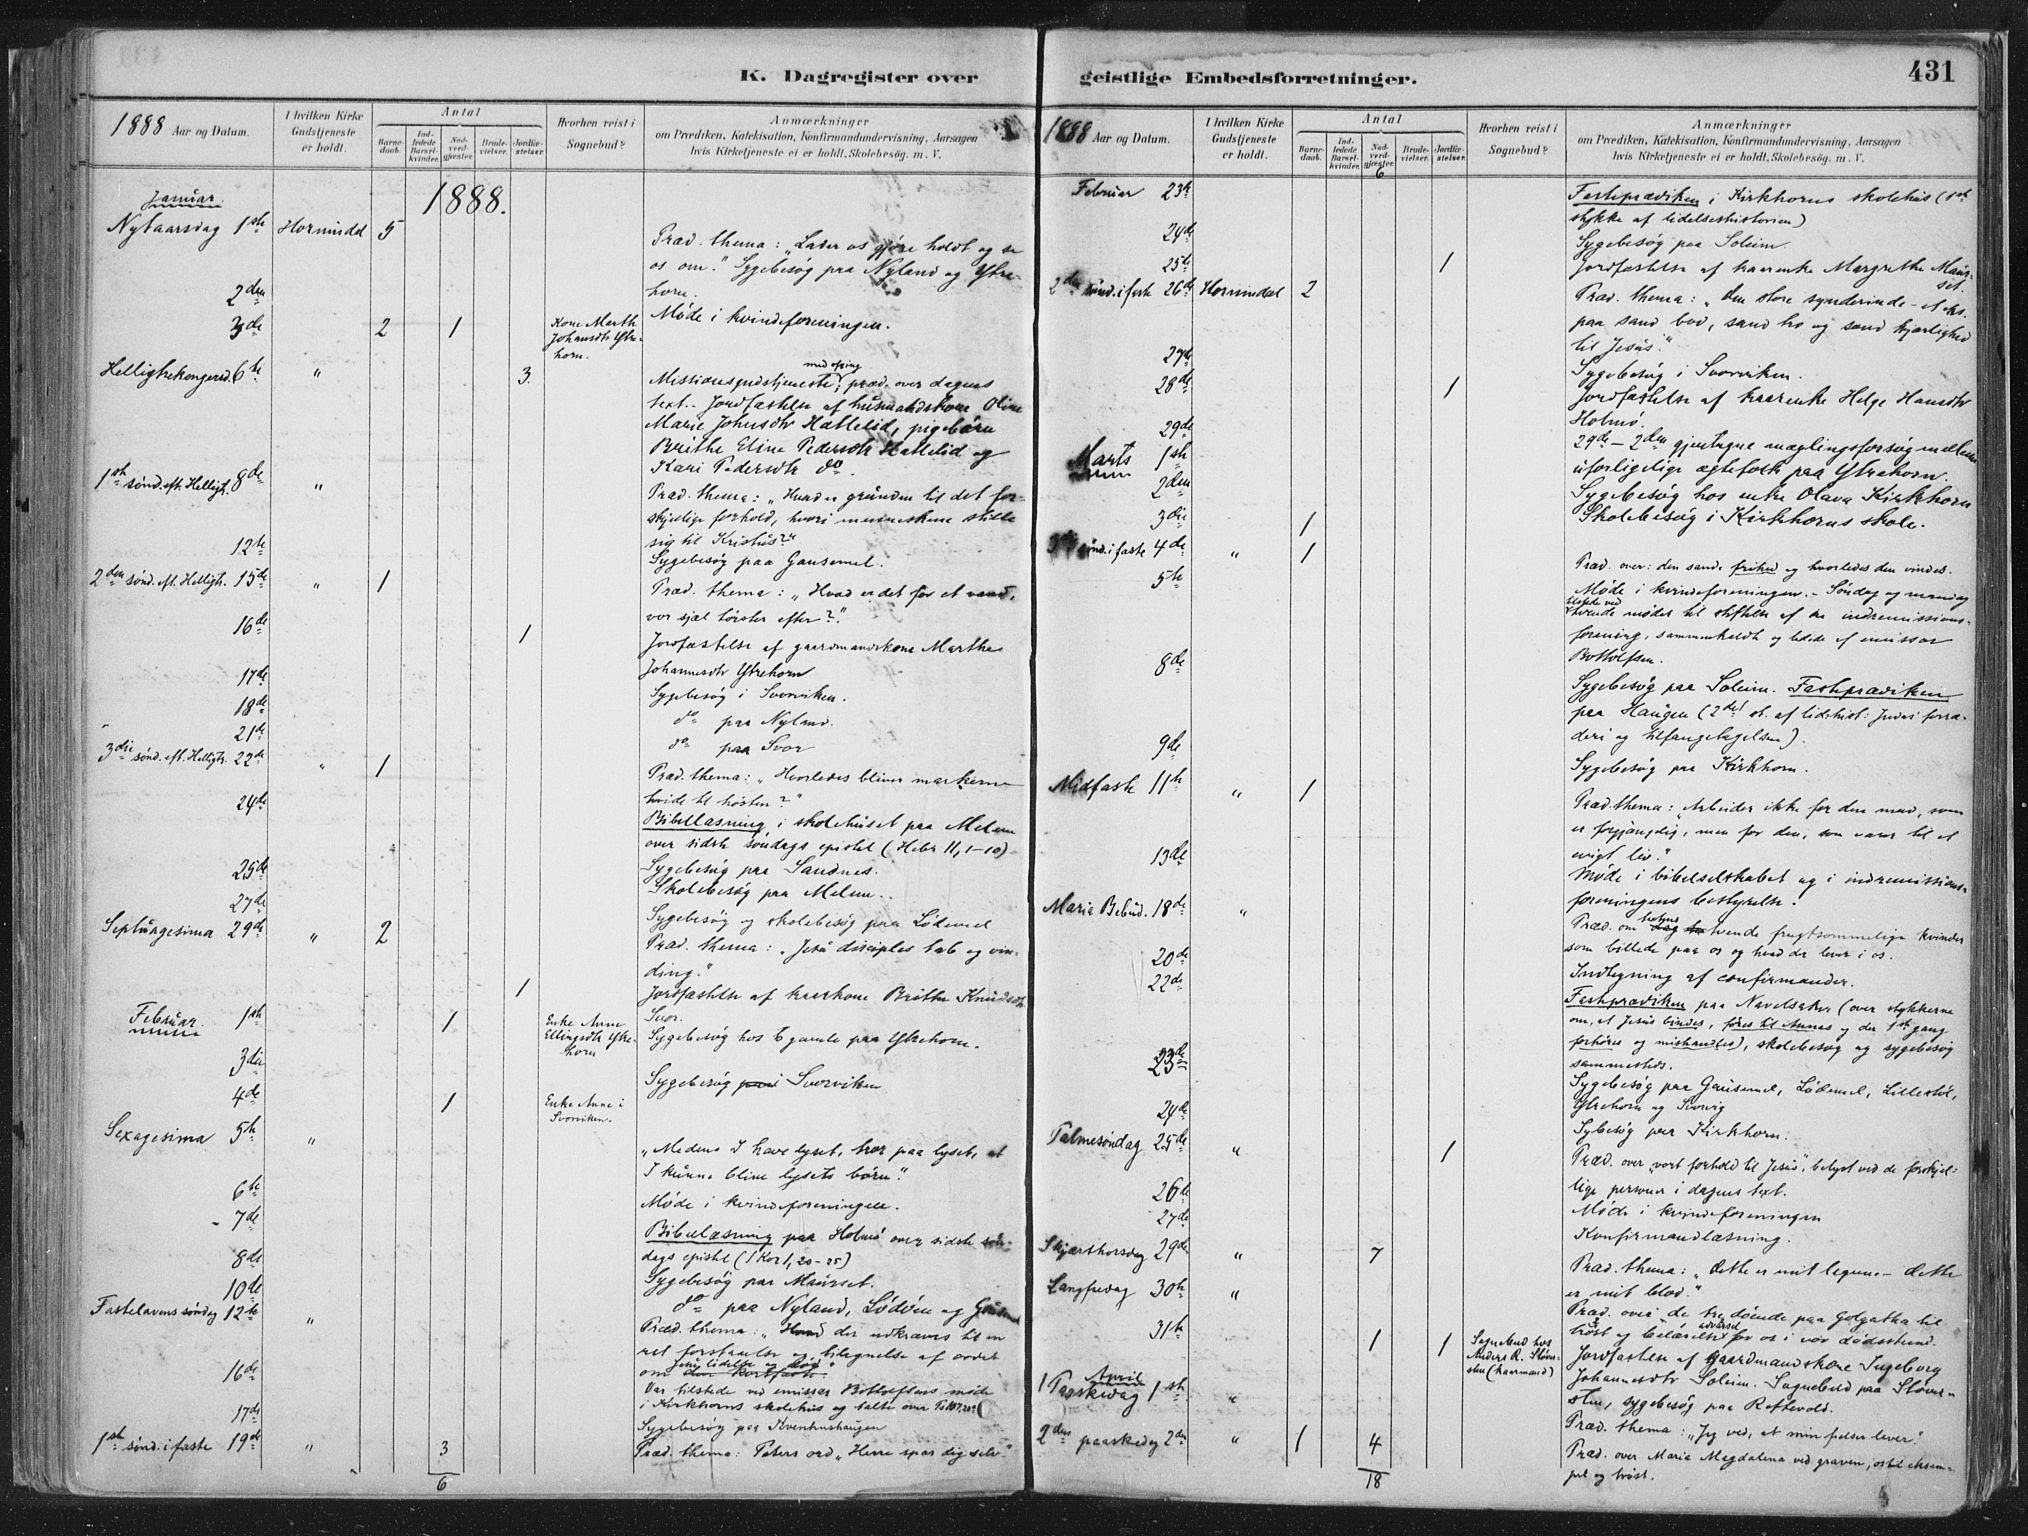 K. Dagregister over
1888 Aar og Datum.
I hvilken Kirke Gudstjeneste er holdt.
Antal
Barnedaab.
Indledede Barselkvinder.
Nadverdgjester.
Brudevielser.
Jordfæstelser.
Hvorhen reist i Sognebud?
Anmærkninger
om Prædiken, Katekisation, Konfirmandundervisning, Aarsagen
hvis Kirketjeneste ei er holdt, Skolebesøg. m. V.
Januar
1888.
Nytaarsdag 1ste Hornindal 5
Præd. thema: "Lader os gjøre holdt og se
os om." Sygebesøg paa Nyland og Ytre-
horn.
2den
Møde i kvindeforeningen.
3die 2 1 Kone Marth
Johansdtr Ytre-
horn.
Helligtrekongersd. 6te " 3
med ofring
Missionsgudstjeneste; præd. over dagens
text. Jordfæstelse af husmandskone Oline
Marie Johnsdtr Hattelid, pigebørn
Brithe Eline Pedersdtr Hattelid og
Kari Pedersdtr do.
1ste sønd. eft. Helligtr. 8de "
Præd. thema: "Hvad er grunden til det for-
skjellige forhold, hvori menneskene stille
sig til Kristus?"
12te
Sygebesøg paa Gausemel.
2den sønd. eft. Helligtr. 15de " 1
Præd. thema: "Hvad er det for et vand,
vor sjæl tørster efter?"
16de 1
Jordfæstelse af gaardmandskone Marthe
Johannesdtr Ytrehorn
17de
Sygebesøg i Svorviken.
18de
do paa Nyland.
21de
do paa Svor
3die sønd. eft. Helligtr. 22de " 1
Præd. thema: "Hvorledes bliver markerne
hvide til høsten?"
24de
Bibellæsning i skolehuset paa Melem
over sidste søndags epistel (Hebr 11, 1-10)
25de
Sygebesøg paa Sandnes.
Skolebesøg paa Melem.
27de
Sygebesøg og skolebesøg paa Lødemel
Septuagesima 29de " 2
Præd. thema: "Jesu disciples tab og vin-
ding."
1
Jordfæstelse af kaarkone Brithe Knudsdtr
Svor.
Februar 1ste 1 Enke Anne
Ellingsdtr Ytre-
horn
Sygebesøg hos 6 gamle paa Ytrehorn.
3die
Sygebesøg i Svorviken
4de 1 Enke Anne i
Svorviken.
Sexagesima 5te "
"Medens I have lyset, tror paa lyset, at
I kunne blive lysets børn".
6te
Møde i kvindeforeningen.
7de
Bibellæsning paa Holmø over sidste søn-
dags epistel (1 Kor 1, 20-25)
8de
Sygebesøg paa Maurset.
10de
do paa Nyland, Lødøen og
Fastelavens søndag 12te "
Præd. thema: "Hvad der udkræves til en
ret forstaaelse og tilegnelse af ordet
om Jesu lidelse og død"
16de
Var tilstede ved emissær Bottolfsens møde
i Kirkhorns skolehus og talte over
17de
Sygebesøg paa Kvenhushaugen
1ste sønd. i faste 19de " 3
Præd. thema: Peters ord "Herre spar dig selv".
6
geistlige Embedsforretninger.
431
1888 Aar og Datum.
I hvilken Kirke Gudstjeneste er holdt.
Antal
Barnedaab.
Indledede Barselkvinder.
Nadverdgjester.
Brudevielser.
Jordfæstelser.
Hvorhen reist i Sognebud?
Anmærkninger
om Prædiken, Katekisation, Konfirmandundervisning, Aarsagen
hvis Kirketjeneste ei er holdt, Skolebesøg. m. V.
6
Februar 23de
Fasteprædiken i Kirkhorns skolehus (1ste
stykke af lidelseshistorien)
24de
Sygebesøg paa Soleim.
25de 1
Jordfæstelse af kaarenke Margrethe Maur-
set.
2den sønd. i faste 26de Hornindal 2
Præd. thema: "Den store synderinde - et eks.
paa sand bod, sand tro og sand kjærlighed
til Jesus".
27de
Sygebesøg i Svorviken.
28de 1
Jordfæstelse af kaarenke Helge Hansdtr
Holmø.
29de
29de - 2den gjentagne mæglingsforsøg mellem
uforligelige ægtefolk paa Ytrehorn.
Marts 1ste
2den
Sygebesøg hos enke Olava Kirkhorn
3die 1
Skolebesøg i Kirkhorns skole.
3die sønd. i faste 4de " 1
Præd. over: den sande frihed og hvorledes den vindes.
5te
Møde i kvindeforeningen. - Søndag og mandag
tilstede ved
møder til stiftelse af en indremissions-
forening, sammenkaldt og ledede af emissær
Bottolfsen.
8de
Sygebesøg paa Soleim. Fasteprædiken
paa Haugen (2det st. af lidshist: Judas' forræ-
deri og tilfangetagelsen).
9de
Sygebesøg paa Kirkhorn.
Midfaste 11te " 1
Præd. thema: "Arbeider ikke for den mad, som
er forgjængelig, men for den, som varer til et
evigt liv."
13de
Møde i bibelselskabet og i indremissions-
foreningens bestyrelse.
Maria Bebud. 18de "
Præd. om tvende frugtsommelige kvinder
som billede paa os og hvad der lever i os.
20de
Indtegning af confirmander.
22de
Fasteprædiken paa Navelsaker (over stykkerne
om, at Jesus bindes, føres til Annas og der 1ste gang
forhøres og mishandles), skolebesøg og sygebesøg
sammesteds.
23de
Sygebesøg paa Gausemel, Lødemel, Lillestøl,
Ytrehorn og Svorvig
24de
Sybesøg paa Kirkhorn.
Palmesøndag 25de " 1
Præd. over "vort forhold til Jesus", belyst ved de forskjel-
lige personer i dagens text.
26de
Møde i kvindeforeningen
27de
Konfirmandlæsning.
Skjærthorsdag 29de " 7
Præd. thema: "dette er mit legeme - dette
er mit blod."
Langfredag 30te "
Præd. over "de tre døende paa Golgatha til
trøst og advarsel for os i vor dødsstund.
31te 1 1 Sognebud hos
Anders R. Støver-
sten (kaarmand)
Jordfæstelse af gaardmandskone Ingeborg
Johannesdtr Soleim. Sognebud paa Støver-
sten, sygebesøg paa Raftevold.
April
1 Paaskedag 1ste "
Præd. thema: "Jeg ved, at min frelser lever".
2den paaskedag 2den " 1 4
Præd. over Maria Magdalena ved graven, os til eksem-
pel og trøst.
18